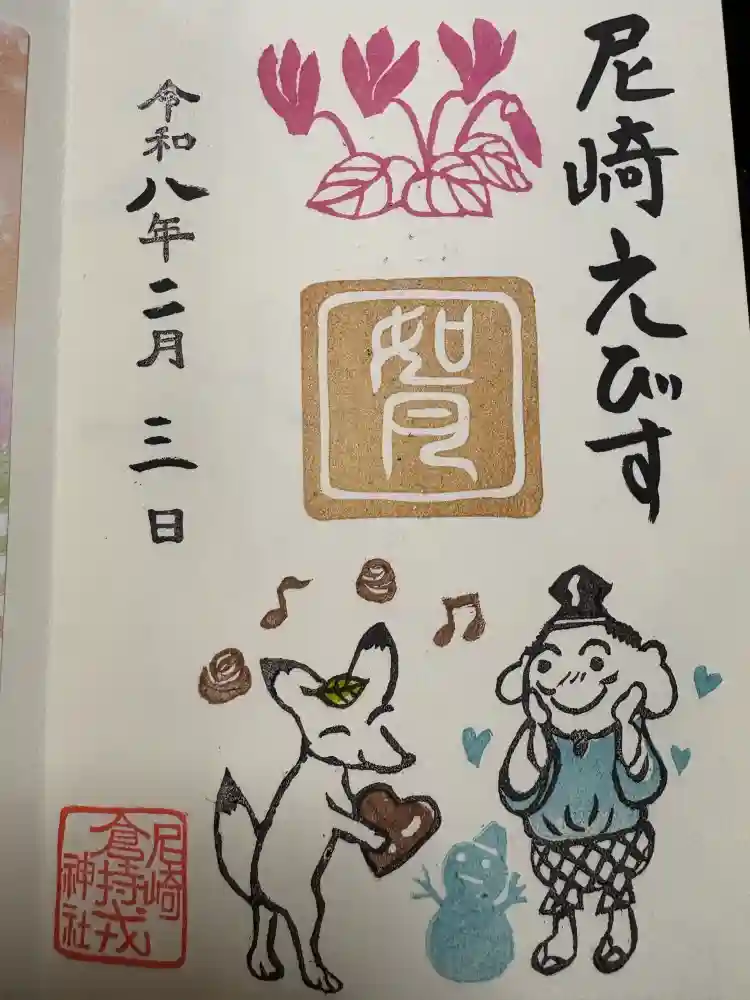 尼崎えびす
如月
令和八年二月三日
尼崎
倉持戎
神社